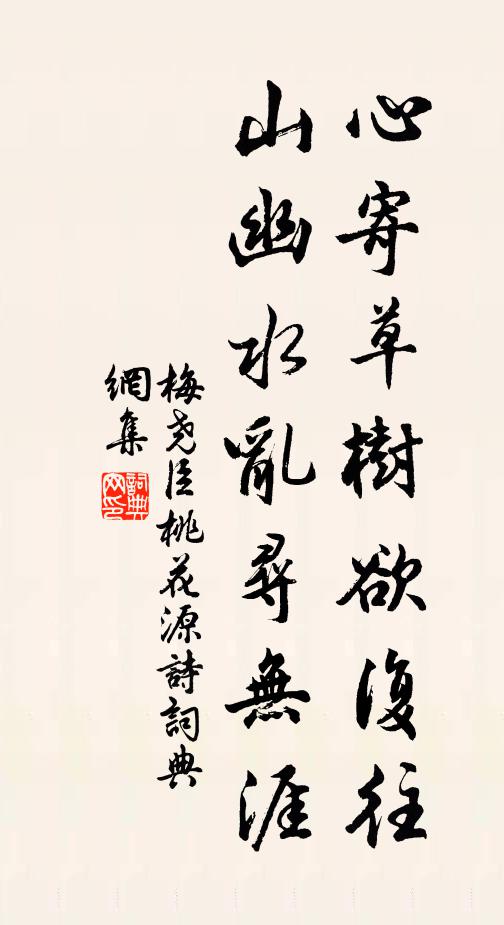 心寄草樹欲復往
山幽水亂尋無涯
梅尧臣桃花源詩詞典
網集
詞典
网印